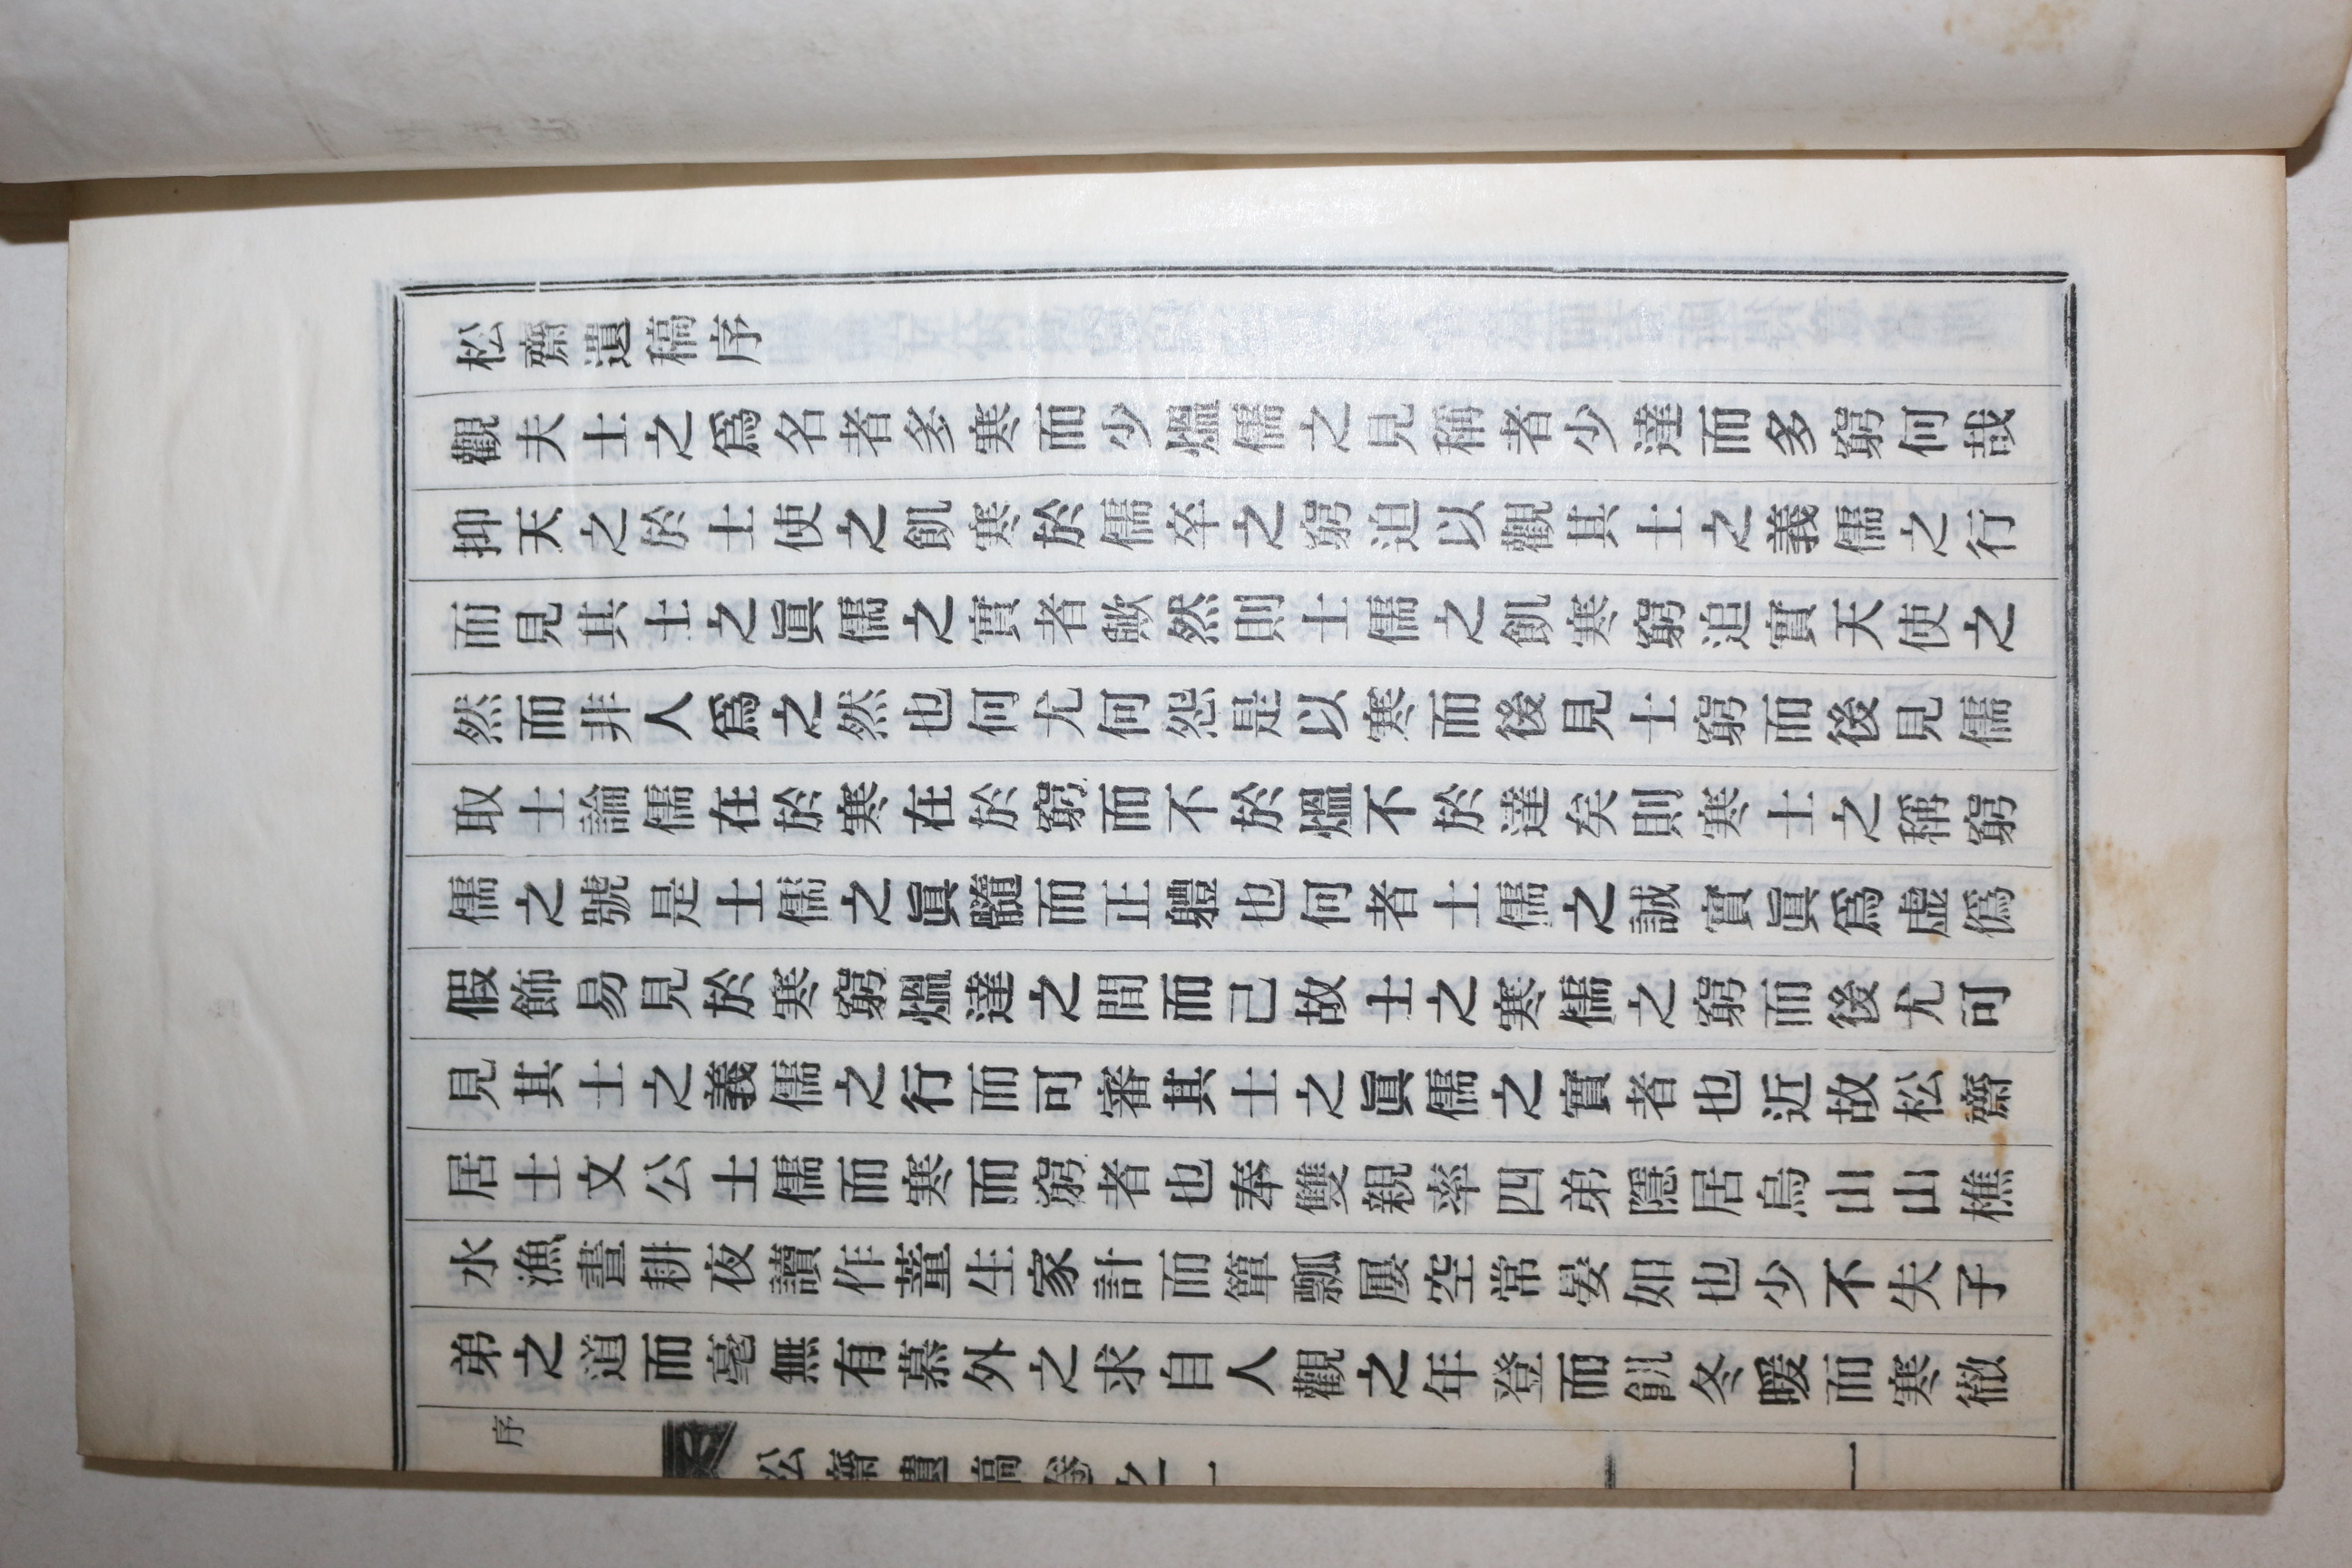 松齋遺稿序
觀夫士之爲名者多寒而少熅儒之見稱者少達而多窮何哉
抑天之於士使之飢寒於儒卒之窮迫以觀其士之義儒之行
而見其士之眞儒之實者歟然則士儒之飢寒窮迫實天使之
然而非人爲之然也何尤何怨是以寒而後見士窮而後見儒
取士論儒在於寒在於窮而不於熅不於達矣則寒士之稱窮
儒之號是士儒之眞髓而正軆也何者士儒之誠實眞爲虛僞
假飾易見於寒窮熅達之間而已故士之寒儒之窮而後尤可
見其士之義儒之行而可審其士之眞儒之實者也近故松齋
居士文公士儒而寒而窮者也奉雙親率四弟隱居烏山山樵
水漁晝耕夜讀作蕫生家計而簞瓢屢空常晏如也少不失子
弟之道而毫無有慕外之求自人觀之年登而飢冬暖而寒徹
序
松齋遺稿卷之一
一